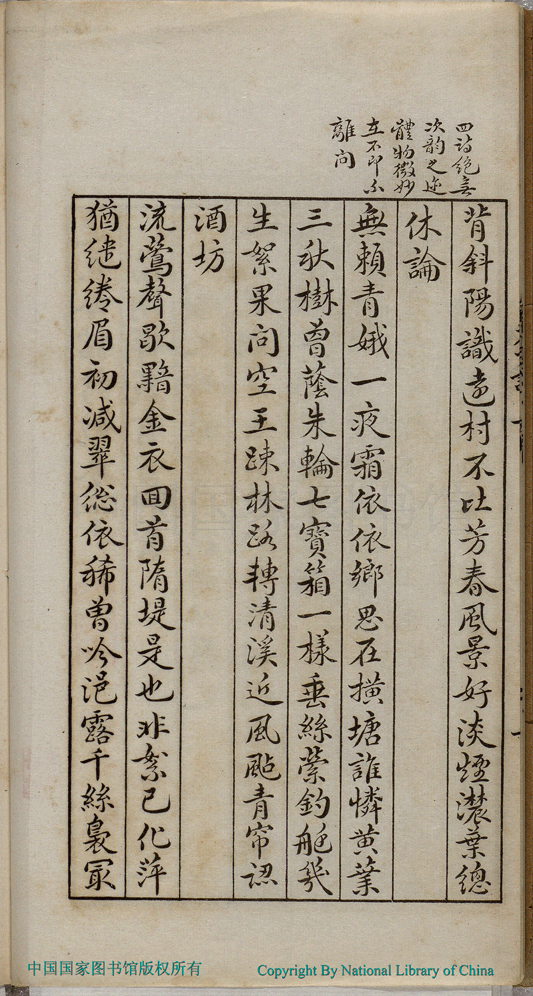 四詩絕無
次韵之迹
體物微妙
在不即不
離间
背斜陽識遠村不比芳春風景好淡煙濃葉總
休論
無賴青娥一夜霜依依鄉思在撗塘誰憐黄葉
三秋樹曾蔭朱輪七寶箱一樣垂絲縈釣艇幾
生絮果問空王疎林路轉清溪近風颭青帘認
酒坊
流鶯聲歇黯金衣回首隋堤是也非絮已化萍
猶繾綣眉初減翠總依稀曾吟浥露千絲裊
中国国家图书馆版权所有
Copyright By National Library of China